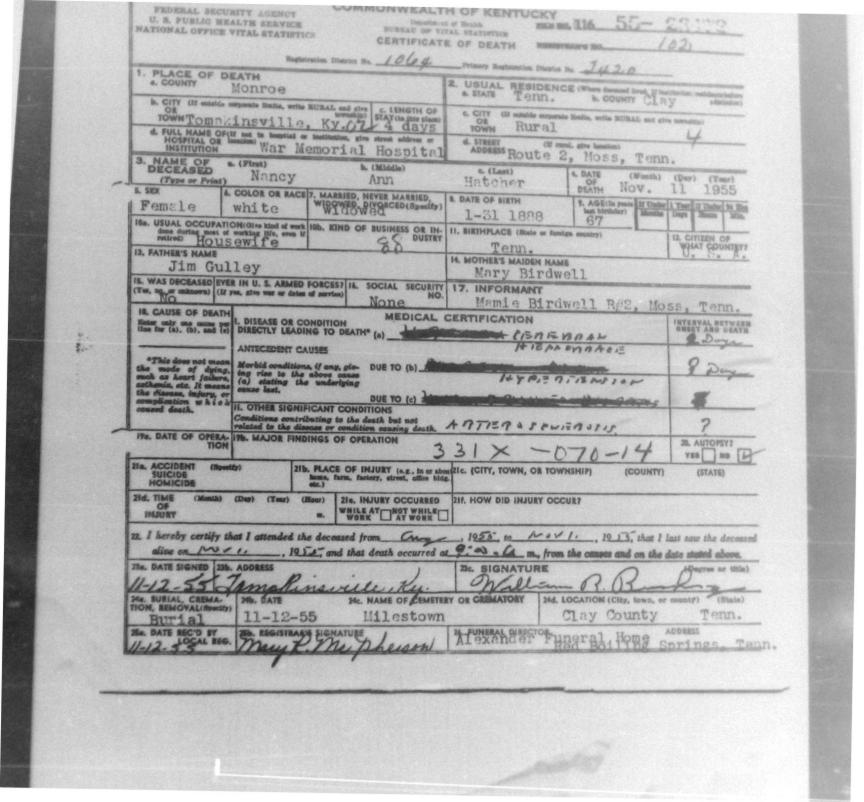 FEDERAL SECURITY AGENCY
U. S. PUBLIC HEALTH SERVICE
NATIONAL OFFICE VITAL STATISTICS
COMMONWEALTH OF KENTUCKY
Department of Health
BUREAU OF VITAL STATISTICS
CERTIFICATE OF DEATH
116 55-
REGISTRAR'S NO. 102
Registration District No. 1064 Primary Registration District No. 2420
1. PLACE OF DEATH
a. COUNTY Monroe
2. USUAL RESIDENCE (Where deceased lived. If institution: residence before admission)
a. STATE Tenn. b. COUNTY Clay
b. CITY (If outside corporate limits, write RURAL and give township)
OR TOWN Tompkinsville, Ky.
c. LENGTH OF STAY (in this place) 4 days
c. CITY (If outside corporate limits, write RURAL and give township)
OR TOWN Rural 4
d. FULL NAME OF (If not in hospital or institution, give street address or location)
HOSPITAL OR INSTITUTION War Memorial Hospital
d. STREET (If rural, give location)
ADDRESS Route 2, Moss, Tenn.
3. NAME OF DECEASED (Type or Print)
a. (First) Nancy
b. (Middle) Ann
c. (Last) Hatcher
4. DATE OF DEATH (Month) (Day) (Year) Nov. 11 1955
5. SEX Female
6. COLOR OR RACE white
7. MARRIED, NEVER MARRIED, WIDOWED, DIVORCED (Specify) Widowed
8. DATE OF BIRTH 1-31 1888
9. AGE (In years last birthday) 67
If Under 1 Year Months Days
If Under 24 Hrs. Hours Min.
10a. USUAL OCCUPATION (Give kind of work done during most of working life, even if retired) Housewife
10b. KIND OF BUSINESS OR INDUSTRY 88
11. BIRTHPLACE (State or foreign country) Tenn.
12. CITIZEN OF WHAT COUNTRY? U. S. A.
13. FATHER'S NAME
Jim Gulley
14. MOTHER'S MAIDEN NAME
Mary Birdwell
15. WAS DECEASED EVER IN U. S. ARMED FORCES?
(Yes, no, or unknown) (If yes, give war or dates of service) No
16. SOCIAL SECURITY NO. None
17. INFORMANT
Mamie Birdwell R#2, Moss, Tenn.
18. CAUSE OF DEATH
Enter only one cause per line for (a), (b), and (c)
*This does not mean the mode of dying, such as heart failure, asthenia, etc. It means the disease, injury, or complication which caused death.
MEDICAL CERTIFICATION
INTERVAL BETWEEN ONSET AND DEATH
I. DISEASE OR CONDITION
DIRECTLY LEADING TO DEATH* (a) CEREBRAL HEMORRHAGE Days
ANTECEDENT CAUSES
Morbid conditions, if any, giving rise to the above cause (a) stating the underlying cause last.
DUE TO (b) HYPERTENSION Days
DUE TO (c)
II. OTHER SIGNIFICANT CONDITIONS
Conditions contributing to the death but not related to the disease or condition causing death. ARTERIOSCLEROSIS ?
19a. DATE OF OPERATION
19b. MAJOR FINDINGS OF OPERATION
331X -070-14
20. AUTOPSY?
YES NO
21a. ACCIDENT SUICIDE HOMICIDE (Specify)
21b. PLACE OF INJURY (e.g., in or about home, farm, factory, street, office bldg. etc.)
21c. (CITY, TOWN, OR TOWNSHIP) (COUNTY) (STATE)
21d. TIME OF INJURY (Month) (Day) (Year) (Hour) m.
21e. INJURY OCCURRED
WHILE AT WORK NOT WHILE AT WORK
21f. HOW DID INJURY OCCUR?
22. I hereby certify that I attended the deceased from Aug, 1955 to Nov 11, 1955, that I last saw the deceased
alive on Nov 11, 1955 and that death occurred at m., from the causes and on the date stated above.
23a. DATE SIGNED 11-12-55
23b. ADDRESS Tompkinsville, Ky.
23c. SIGNATURE (Degree or title)
William R.
24a. BURIAL, CREMATION, REMOVAL (Specify) Burial
24b. DATE 11-12-55
24c. NAME OF CEMETERY OR CREMATORY Milestown
24d. LOCATION (City, town, or county) (State) Clay County Tenn.
25a. DATE REC'D BY LOCAL REG. 11-12-55
25b. REGISTRAR'S SIGNATURE Mary R. McPherson
26. FUNERAL DIRECTOR ADDRESS
Alexander Funeral Home
Red Boiling Springs, Tenn.